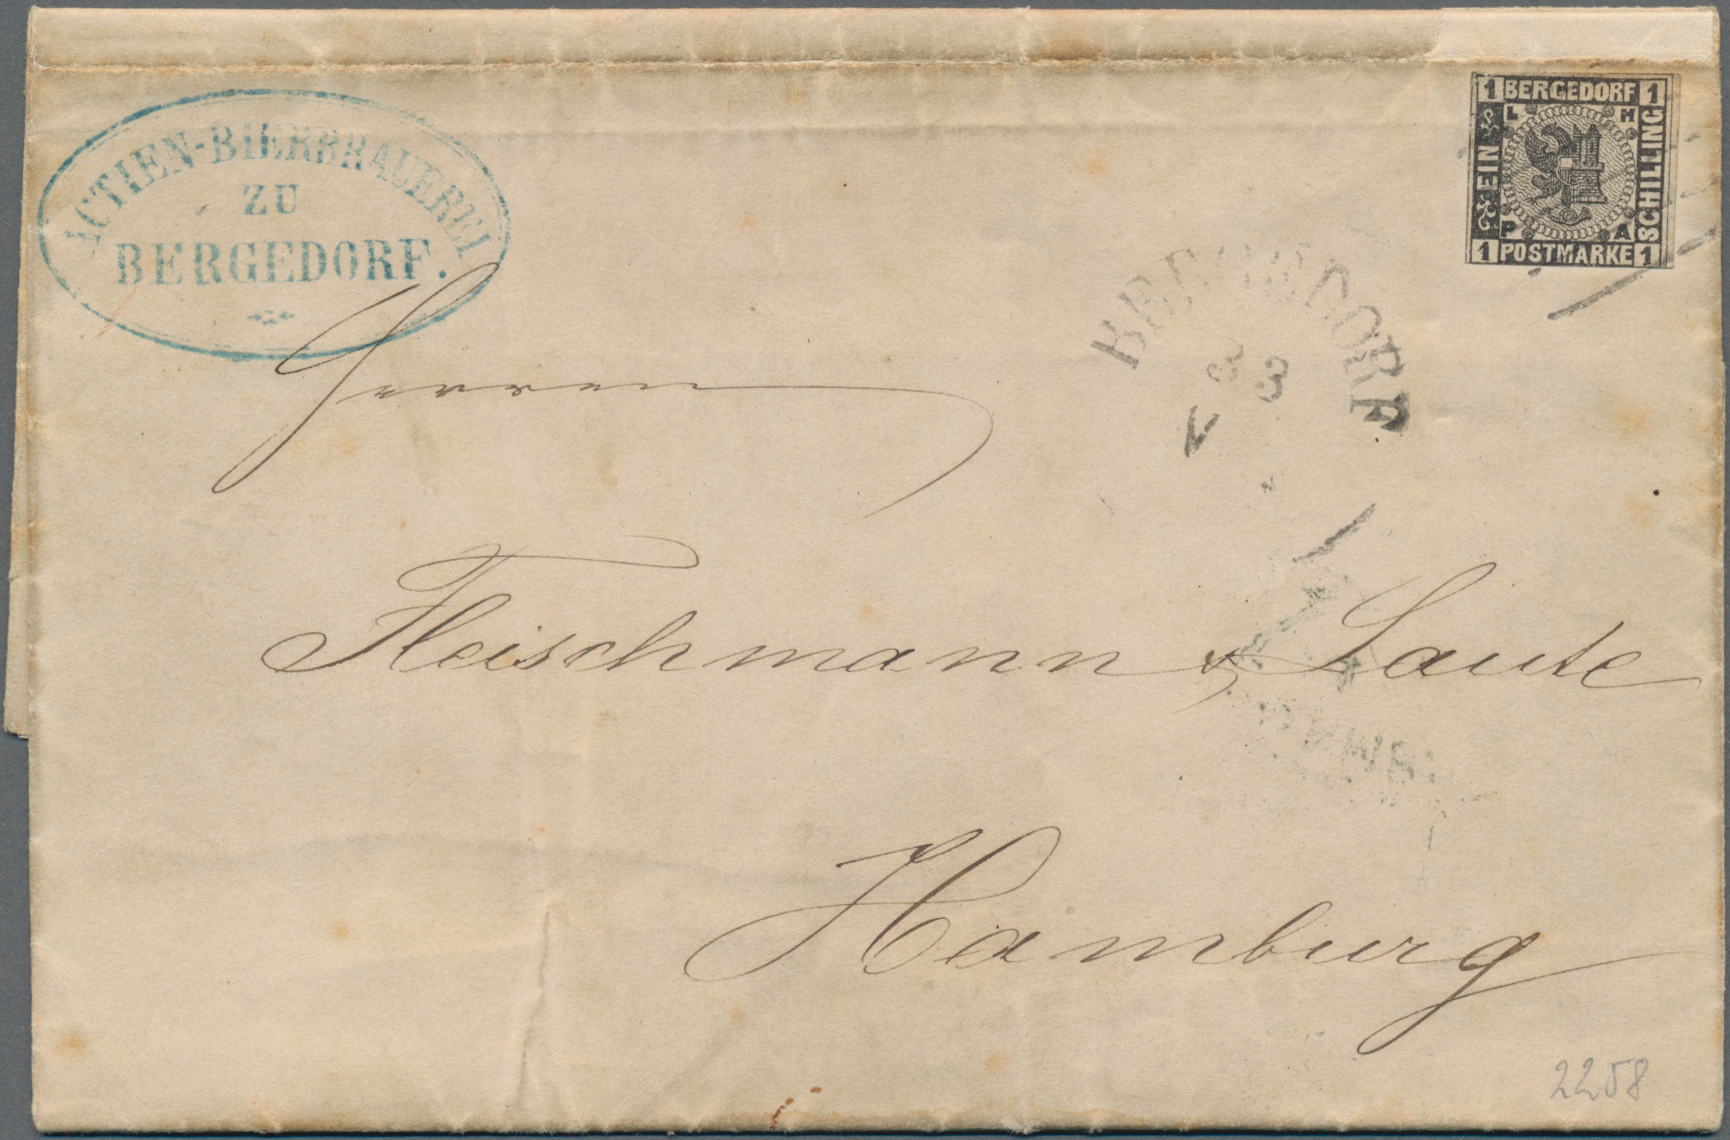 ACTIEN-BIERBRAUEREI
ZU
BERGEDORF.
1 BERGEDORF 1
L H
EIN
SCHILLING
P A
1 POSTMARKE 1
BERGEDORF
3 3
V
Herren
Fleischmann & Laute
Hamburg
2258